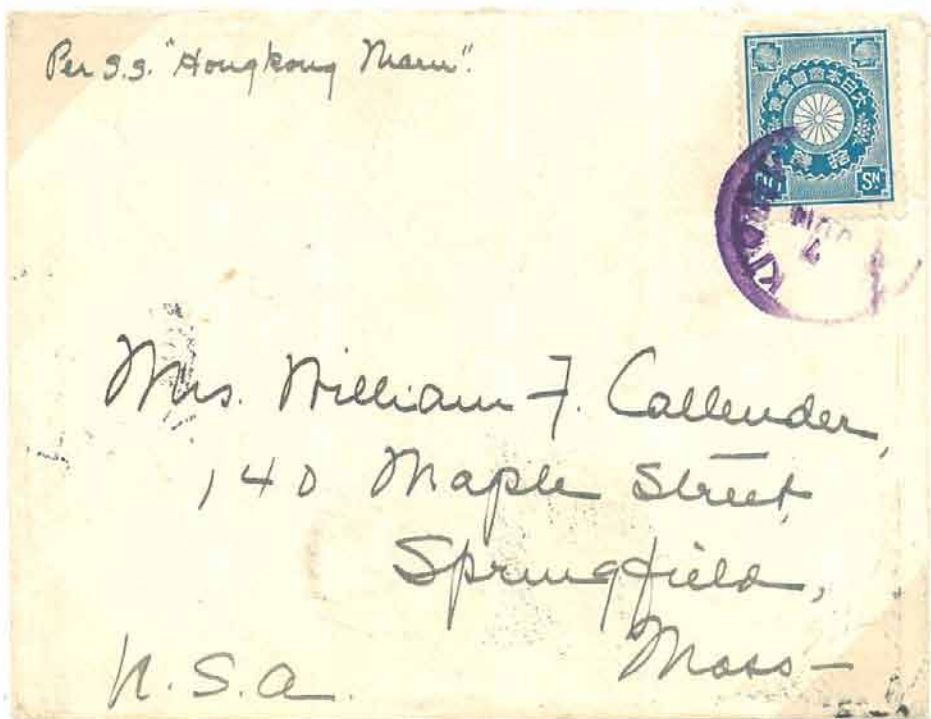 Per S.S. "Hongkong Maru".
大日本帝國郵便
拾錢
10 SN
Mrs. William F. Callender,
140 Maple Street
Springfield,
Mass-
U.S.A.